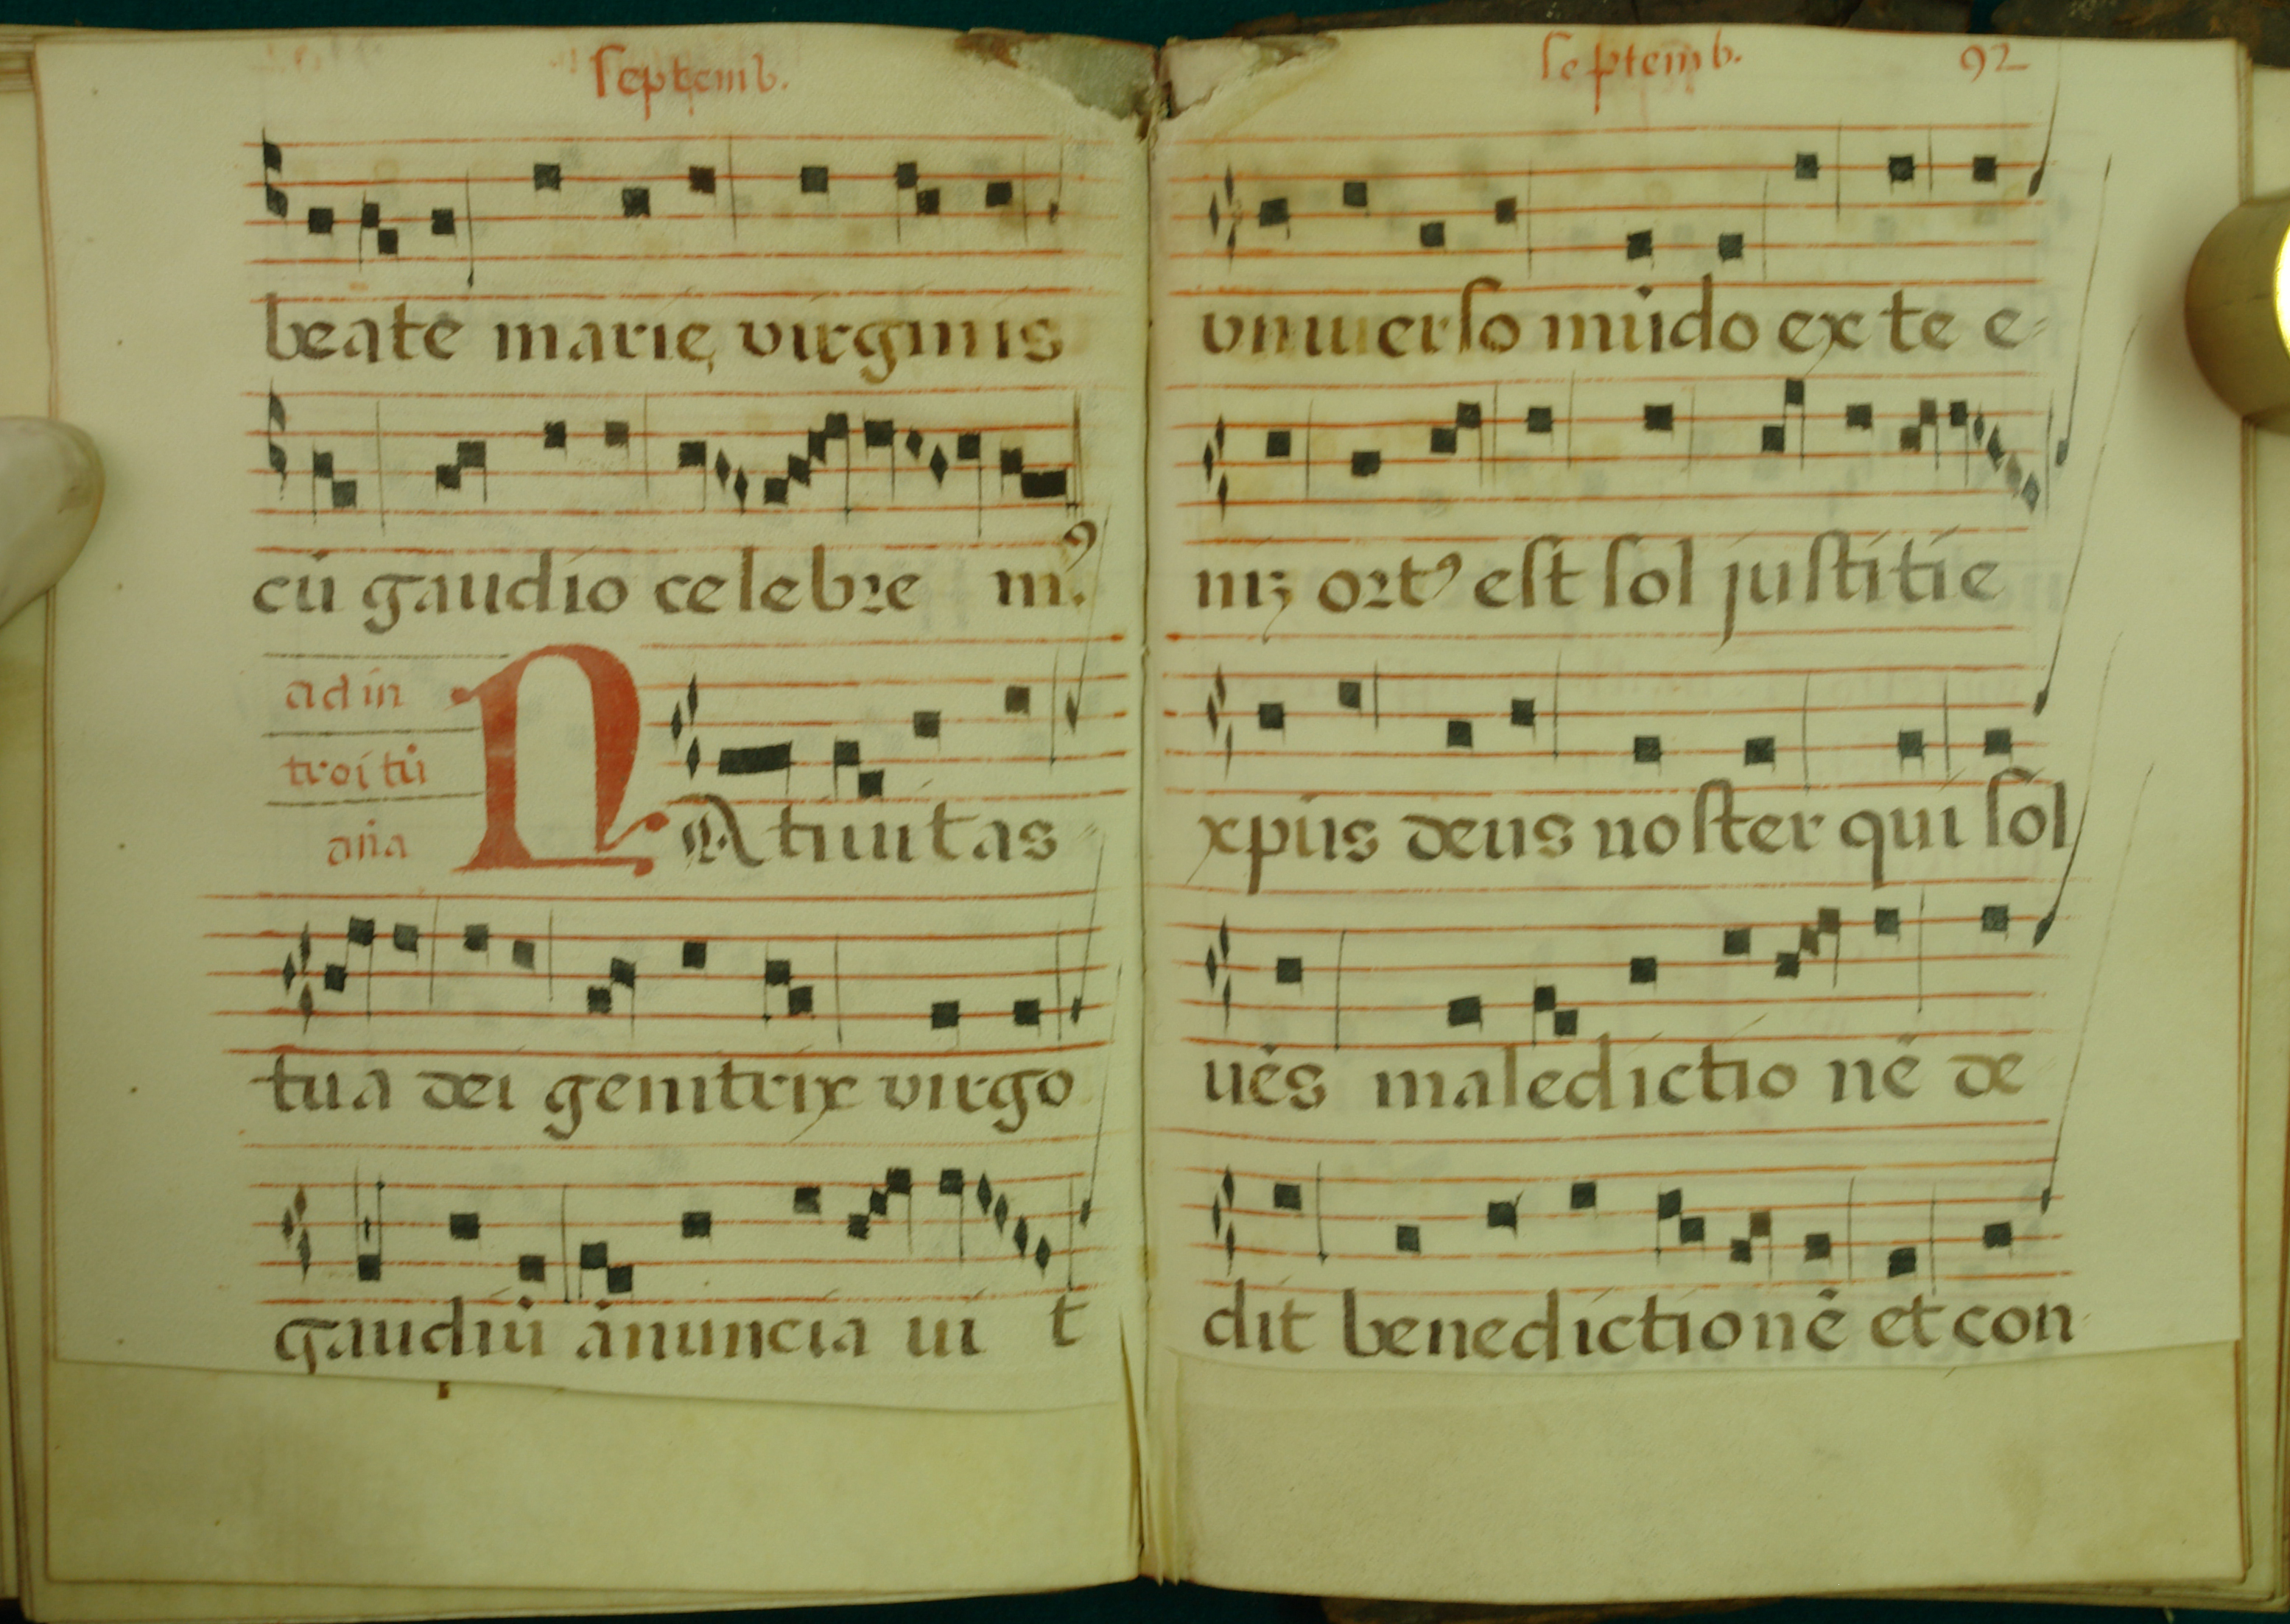 septemb.
beate marie virginis
cū gaudio celebre mꝰ.
ad in
troitū
an̄a
NAtiuitas
tua dei genitrix virgo
gaudiū ānuncia ui t
septemb. 92
vniuerso mūdo ex te e-
nīꝫ ortꝰ est sol justitie
xp̄us deus noster qui sol
uēs maledictio nē de
dit benedictionē et con